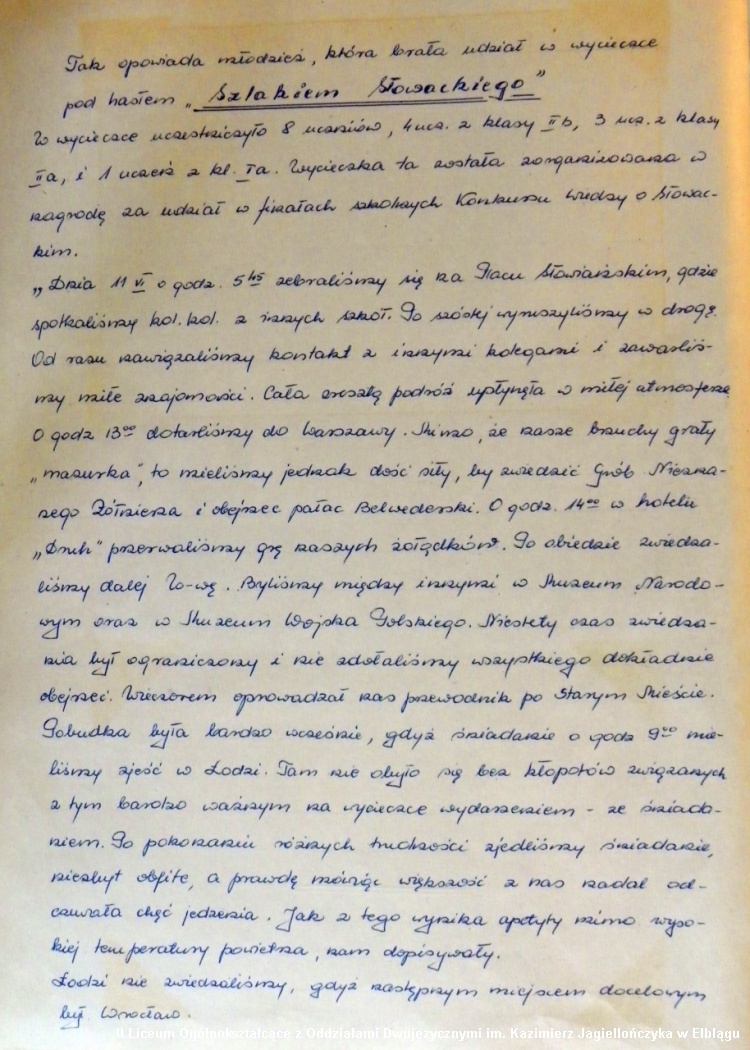 Tak opowiada młodzież, która brała udział w wycieczce
pod hasłem „Szlakiem Słowackiego”
W wycieczce uczestniczyło 8 uczniów, 4 ucz. z klasy II b, 3 ucz. z klasy
II a, i 1 uczeń z kl. I a. Wycieczka ta została zorganizowana w
nagrodę za udział w finałach szkolnych Konkursu Wiedzy o Słowac-
kim.
„Dnia 11 VI o godz. 5 45 zebraliśmy się na Placu Słowiańskim, gdzie
spotkaliśmy kol. kol. z innych szkół. Po szóstej wyruszyliśmy w drogę.
Od razu nawiązaliśmy kontakt z innymi kolegami i zawarliś-
my miłe znajomości. Cała zresztą podróż upłynęła w miłej atmosferze
O godz 13 00 dotarliśmy do Warszawy. Mimo, że nasze brzuchy grały
„mazurka”, to mieliśmy jednak dość siły, by zwiedzić Grób Niezna-
nego Żółnierza i obejrzeć pałac Belwederski. O godz. 14 00 w hotelu
„Druh” przerwaliśmy grę naszych żołądków. Po obiedzie zwiedza-
liśmy dalej W-wę. Byliśmy między innymi w Muzeum Narodo-
wym oraz w Muzeum Wojska Polskiego. Niestety czas zwiedza-
nia był ograniczony i nie zdołaliśmy wszystkiego dokładnie
obejrzeć. Wieczorem oprowadzał nas przewodnik po Starym Mieście.
Pobudka była bardzo wcześnie, gdyż śniadanie o godz 9 00 mie-
liśmy zjeść w Łodzi. Tam nie obyło się bez kłopotów związanych
z tym bardzo ważnym na wycieczce wydarzeniem - ze śniada-
niem. Po pokonaniu różnych trudności zjedliśmy śniadanie,
niezbyt obfite, a prawdę mówiąc większość z nas nadal od-
czuwała chęć jedzenia. Jak z tego wynika apetyty mimo wyso-
kiej temperatury powietrza, nam dopisywały.
Łodzi nie zwiedzaliśmy, gdyż następnym miejscem docelowym
był Wrocław.
II Liceum Ogólnokształcące z Oddziałami Dwujęzycznymi im. Kazimierz Jagiellończyka w Elblągu